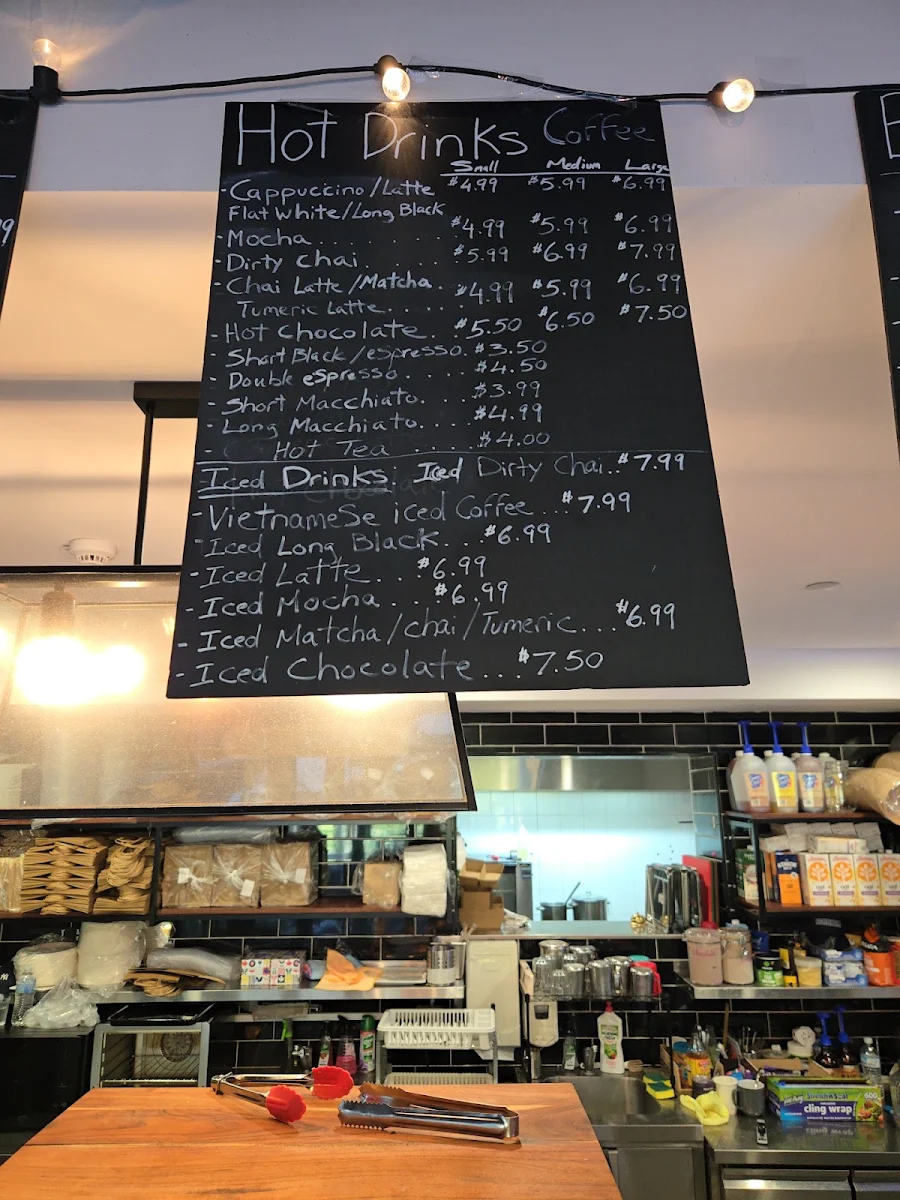 Hot Drinks Coffee
Small Medium Large
- Cappuccino/Latte $4.99 $5.99 $6.99
Flat White/Long Black
- Mocha........ $4.99 $5.99 $6.99
- Dirty Chai....... $5.99 $6.99 $7.99
- Chai Latte/Matcha. $4.99 $5.99 $6.99
Tumeric Latte.....
- Hot Chocolate.... $5.50 $6.50 $7.50
- Short Black/espresso. $3.50
- Double espresso.... $4.50
- Short Macchiato.... $3.99
- Long Macchiato.... $4.99
Hot Tea .... $4.00
Iced Drinks. Iced Dirty Chai..$7.99
- Vietnamese iced Coffee ...$7.99
- Iced Long Black...$6.99
- Iced Latte...$6.99
- Iced Mocha....$6.99
- Iced Matcha/chai/Tumeric...$6.99
- Iced Chocolate...$7.50
cling wrap
600